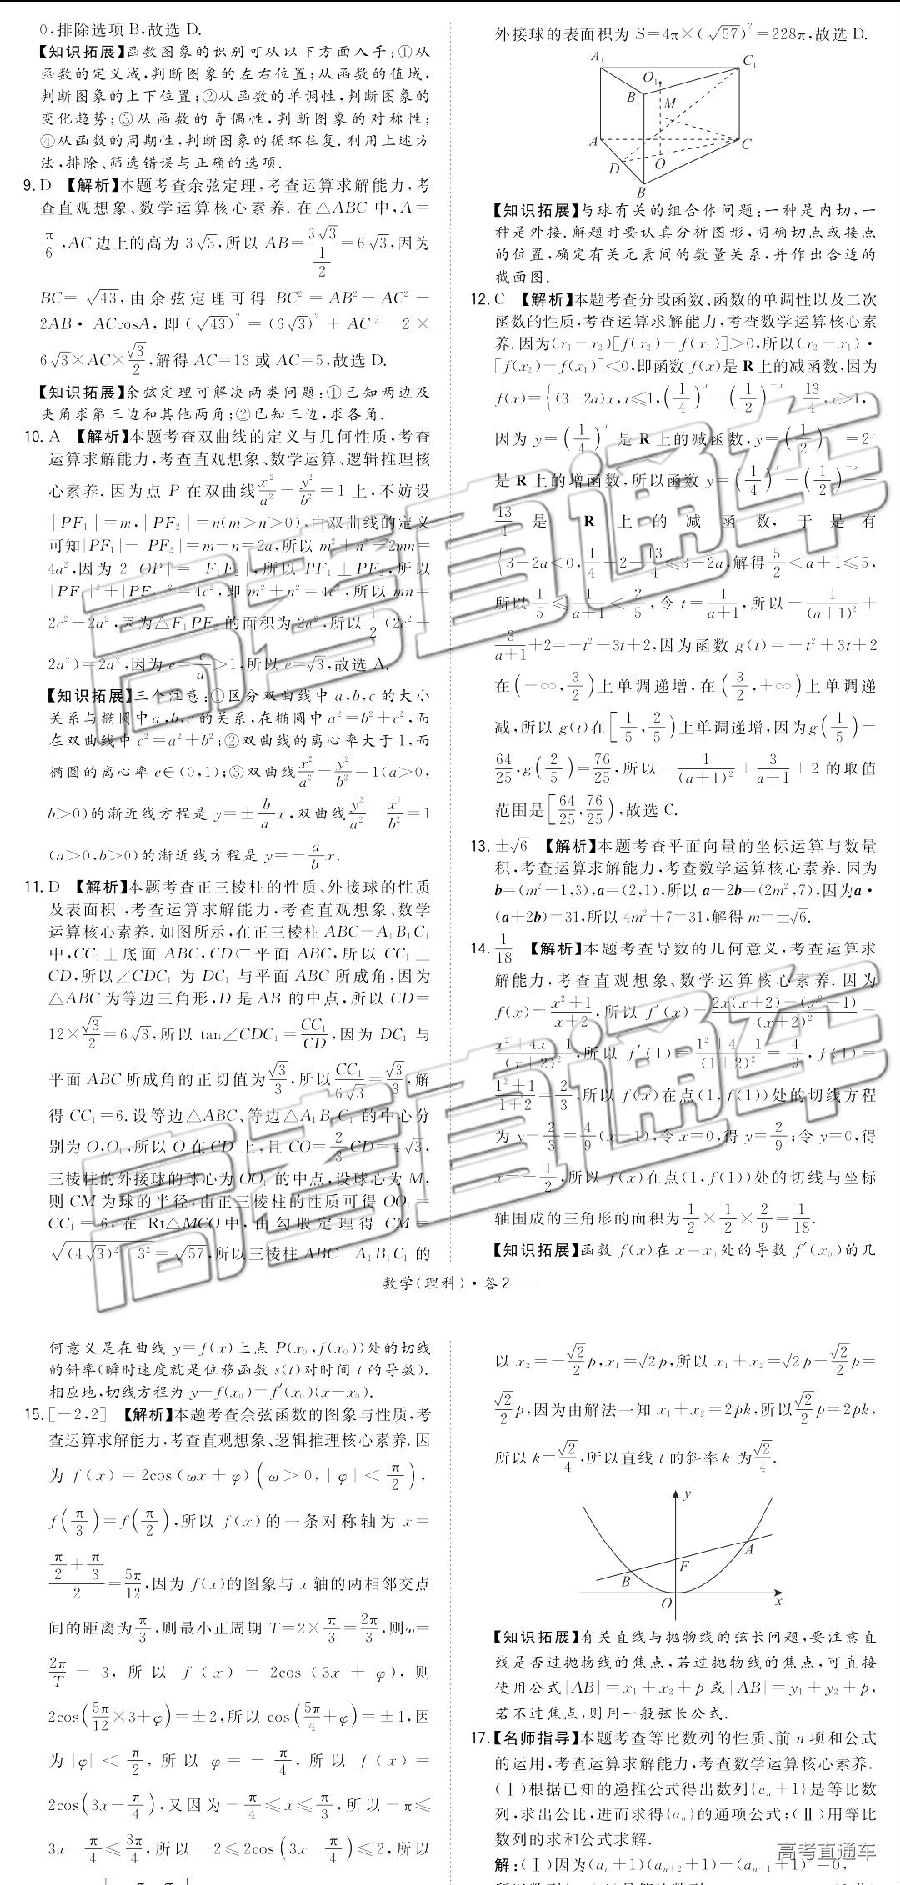 0,排除选项B,故选D.
【知识拓展】函数图象的识别可从以下方面入手:①从
函数的定义域,判断图象的左右位置;从函数的值域,
判断图象的上下位置;②从函数的单调性,判断图象的
变化趋势;③从函数的奇偶性,判断图象的对称性;
④从函数的周期性,判断图象的循环往复.利用上述方
法,排除、筛选错误与正确的选项.
9. D 【解析】本题考查余弦定理,考查运算求解能力,考
查直观想象、数学运算核心素养.在△ABC中,A=
π/6,AC边上的高为3√3,所以AB=3√3/(1/2)=6√3,因为
BC=√43,由余弦定理可得BC²=AB²+AC²-
2AB·ACcosA,即(√43)²=(6√3)²+AC²-2×
6√3×AC×√3/2,解得AC=13或AC=5,故选D.
【知识拓展】余弦定理可解决两类问题:①已知两边及
夹角求第三边和其他两角;②已知三边,求各角.
10. A 【解析】本题考查双曲线的定义与几何性质,考查
运算求解能力,考查直观想象、数学运算、逻辑推理核
心素养.因为点P在双曲线x²/a²-y²/b²=1上,不妨设
|PF₁|=m,|PF₂|=n(m>n>0),由双曲线的定义
可知|PF₁|-|PF₂|=m-n=2a,所以m²+n²-2mn=
4a²,因为2|OP|=|F₁F₂|,所以PF₁⊥PF₂,所以
|PF₁|²+|PF₂|²=4c²,即m²+n²=4c²,所以mn=
2c²-2a²,因为△F₁PF₂的面积为2a²,所以1/2(2c²-
2a²)=2a²,因为e=c/a>1,所以e=√3,故选A.
【知识拓展】三个注意:①区分双曲线中a,b,c的大小
关系与椭圆中a,b,c的关系,在椭圆中a²=b²+c²,而
在双曲线中c²=a²+b²;②双曲线的离心率大于1,而
椭圆的离心率e∈(0,1);③双曲线x²/a²-y²/b²=1(a>0,
b>0)的渐近线方程是y=±b/a x,双曲线y²/a²-x²/b²=1
(a>0,b>0)的渐近线方程是y=±a/b x.
11. D 【解析】本题考查正三棱柱的性质、外接球的性质
及表面积,考查运算求解能力,考查直观想象、数学
运算核心素养.如图所示,在正三棱柱ABC-A₁B₁C₁
中,CC₁⊥底面ABC,CD⊂平面ABC,所以CC₁⊥
CD,所以∠CDC₁为DC₁与平面ABC所成角,因为
△ABC为等边三角形,D是AB的中点,所以CD=
12×√3/2=6√3,所以tan∠CDC₁=CC₁/CD,因为DC₁与
平面ABC所成角的正切值为√3/3,所以CC₁/6√3=√3/3,解
得CC₁=6,设等边△ABC、等边△A₁B₁C₁的中心分
别为O,O₁,所以O在CD上,且CO=2/3CD=4√3,
三棱柱的外接球的球心为OO₁的中点,设球心为M,
则CM为球的半径,由正三棱柱的性质可得OO₁=
CC₁=6,在Rt△MCO中,由勾股定理得CM=
√((4√3)²+3²)=√57,所以三棱柱ABC-A₁B₁C₁的
外接球的表面积为S=4π×(√57)²=228π,故选D.
A₁
C₁
O₁
B₁
M
A
C
D
O
B
【知识拓展】与球有关的组合体问题:一种是内切,一
种是外接.解题时要认真分析图形,明确切点或接点
的位置,确定有关元素间的数量关系,并作出合适的
截面图.
12. C 【解析】本题考查分段函数、函数的单调性以及二次
函数的性质,考查运算求解能力,考查数学运算核心素
养.因为(x₁-x₂)[f(x₂)-f(x₁)]>0,所以(x₂-x₁)·
[f(x₂)-f(x₁)]<0,即函数f(x)是R上的减函数,因为
是R上的增函数,所以函数
是R上的减函数,于是有
减,所以g(t)在[1/5,2/5)上单调递增,因为g(1/5)=
64/25,g(2/5)=76/25,所以-1/(a+1)²+3/(a+1)+2的取值
范围是[64/25,76/25),故选C.
13. ±√6 【解析】本题考查平面向量的坐标运算与数量
积,考查运算求解能力,考查数学运算核心素养.因为
b=(m²-1,3),a=(2,1),所以a+2b=(2m²,7),因为a·
(a+2b)=31,所以4m²+7=31,解得m=±√6.
14. 1/18 【解析】本题考查导数的几何意义,考查运算求
解能力,考查直观想象、数学运算核心素养.因为
所以f(x)在点(1,f(1))处的切线方程
为y-2/3=4/9(x-1),令x=0,得y=2/9;令y=0,得
x=-1/2,所以f(x)在点(1,f(1))处的切线与坐标
轴围成的三角形的面积为1/2×1/2×2/9=1/18.
【知识拓展】函数f(x)在x=x₀处的导数f′(x₀)的几
数学(理科)·答2
何意义是在曲线y=f(x)上点P(x₀,f(x₀))处的切线
的斜率(瞬时速度就是位移函数s(t)对时间t的导数).
相应地,切线方程为y-f(x₀)=f′(x₀)(x-x₀).
15. [-2,2] 【解析】本题考查余弦函数的图象与性质,考
查运算求解能力,考查直观想象、逻辑推理核心素养.因
为f(x)=2cos(ωx+φ)(ω>0,|φ|<π/2),
f(π/3)=f(π/2),所以f(x)的一条对称轴为x=
(π/2+π/3)/2=5π/12,因为f(x)的图象与x轴的两相邻交点
间的距离为π/3,则最小正周期T=2×π/3=2π/3,则ω=
2π/T=3,所以f(x)=2cos(3x+φ),则
2cos(5π/12×3+φ)=±2,所以cos(5π/4+φ)=±1,因
为|φ|<π/2,所以φ=-π/4,所以f(x)=
2cos(3x-π/4),又因为-π/4≤x≤π/3,所以-π≤
3x-π/4≤3π/4,所以-2≤2cos(3x-π/4)≤2,所以
以x₂=-√2/2p,x₁=√2p,所以x₁+x₂=√2p-√2/2p=
√2/2p,因为由解法一知x₁+x₂=2pk,所以√2/2p=2pk,
所以k=√2/4,所以直线l的斜率k为√2/4.
y
A
F
B
O
x
【知识拓展】有关直线与抛物线的弦长问题,要注意直
线是否过抛物线的焦点,若过抛物线的焦点,可直接
使用公式|AB|=x₁+x₂+p或|AB|=y₁+y₂+p,
若不过焦点,则用一般弦长公式.
17.【名师指导】本题考查等比数列的性质、前n项和公式
的运用,考查运算求解能力,考查数学运算核心素养.
(Ⅰ)根据已知的递推公式得出数列{aₙ+1}是等比数
列,求出公比,进而求得{aₙ}的通项公式;(Ⅱ)用等比
数列的求和公式求解.
解:(Ⅰ)因为(aₙ+1)(aₙ₊₂+1)-(aₙ₊₁+1)²=0,
高考直通车
高考直通车
高考直通车